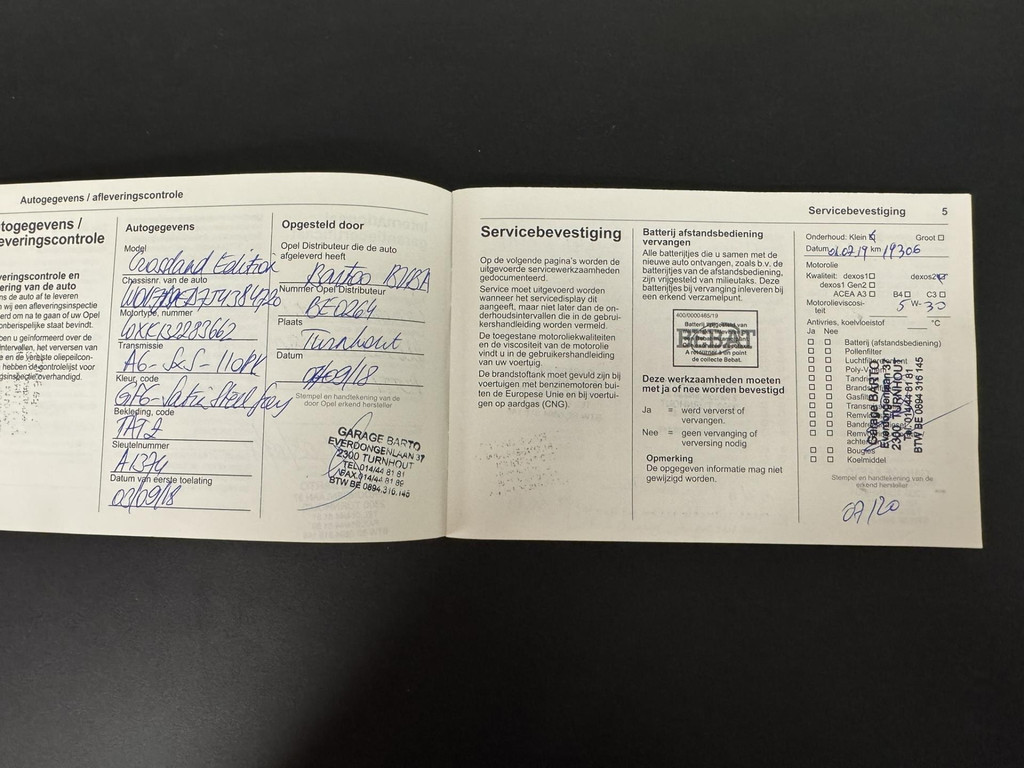 Autogegevens / afleveringscontrole
togegevens /
everingscontrole
veringscontrole en
ering van de auto
ns de auto af te leveren
wij een afleveringsinspectie
erd om na te gaan of uw Opel
onberispelijke staat bevindt.
ben u geïnformeerd over de
intervallen, het verversen van
en de vereiste oliepeilcon-
hebben de controlelijst voor
gsinspectie overhandigd.
Autogegevens
Model
Crossland Edition
Chassisnr. van de auto
Motortype, nummer
Transmissie
A6-S&S-110PK
Kleur, code
Bekleding, code
TAT2
Sleutelnummer
A1374
Datum van eerste toelating
03/09/18
Opgesteld door
Opel Distributeur die de auto
afgeleverd heeft
Bartoo BVBSA
Nummer Opel Distributeur
BE0264
Plaats
Turnhout
Datum
Stempel en handtekening van de
door Opel erkend hersteller
GARAGE BARTO
EVERDONGENLAAN 37
2300 TURNHOUT
TEL.014/44 81 81
FAX.014/44 81 89
BTW BE 0894.316.145
Servicebevestiging 5
Servicebevestiging
Op de volgende pagina's worden de
uitgevoerde servicewerkzaamheden
gedocumenteerd.
Service moet uitgevoerd worden
wanneer het servicedisplay dit
aangeeft, maar niet later dan de on-
derhoudsintervallen die in de gebrui-
kershandleiding worden vermeld.
De toegestane motoroliekwaliteiten
en de viscositeit van de motorolie
vindt u in de gebruikershandleiding
van uw voertuig.
De brandstoftank moet gevuld zijn bij
voertuigen met benzinemotoren bui-
ten de Europese Unie en bij voertui-
gen op aardgas (CNG).
Batterij afstandsbediening
vervangen
Alle batterijtjes die u samen met de
nieuwe auto ontvangen, zoals b.v. de
batterijtjes van de afstandsbediening,
zijn vrijgesteld van milieutaks. Deze
batterijtjes bij vervanging inleveren bij
een erkend verzamelpunt.
400/0000465/19
BEBAT
A retourner à un point
de collecte Bebat.
Deze werkzaamheden moeten
met ja of nee worden bevestigd
Ja = werd ververst of
vervangen.
Nee = geen vervanging of
verversing nodig
Opmerking
De opgegeven informatie mag niet
gewijzigd worden.
Onderhoud: Klein Groot
Datum 01.07.19 km 19306
Motorolie
Kwaliteit: dexos1 dexos2
dexos1 Gen2
ACEA A3 B4 C3
Motorolieviscosi-
teit 5 W- 30
Antivries, koelvloeistof °C
Ja Nee
Batterij (afstandsbediening)
Pollenfilter
Koelmiddel
Garage BARTO
Everdongenlaan 37
2300 TURNHOUT
Tel. 014/44 81 81
BTW BE 0894 316 145
Stempel en handtekening van de
erkend hersteller
07/20